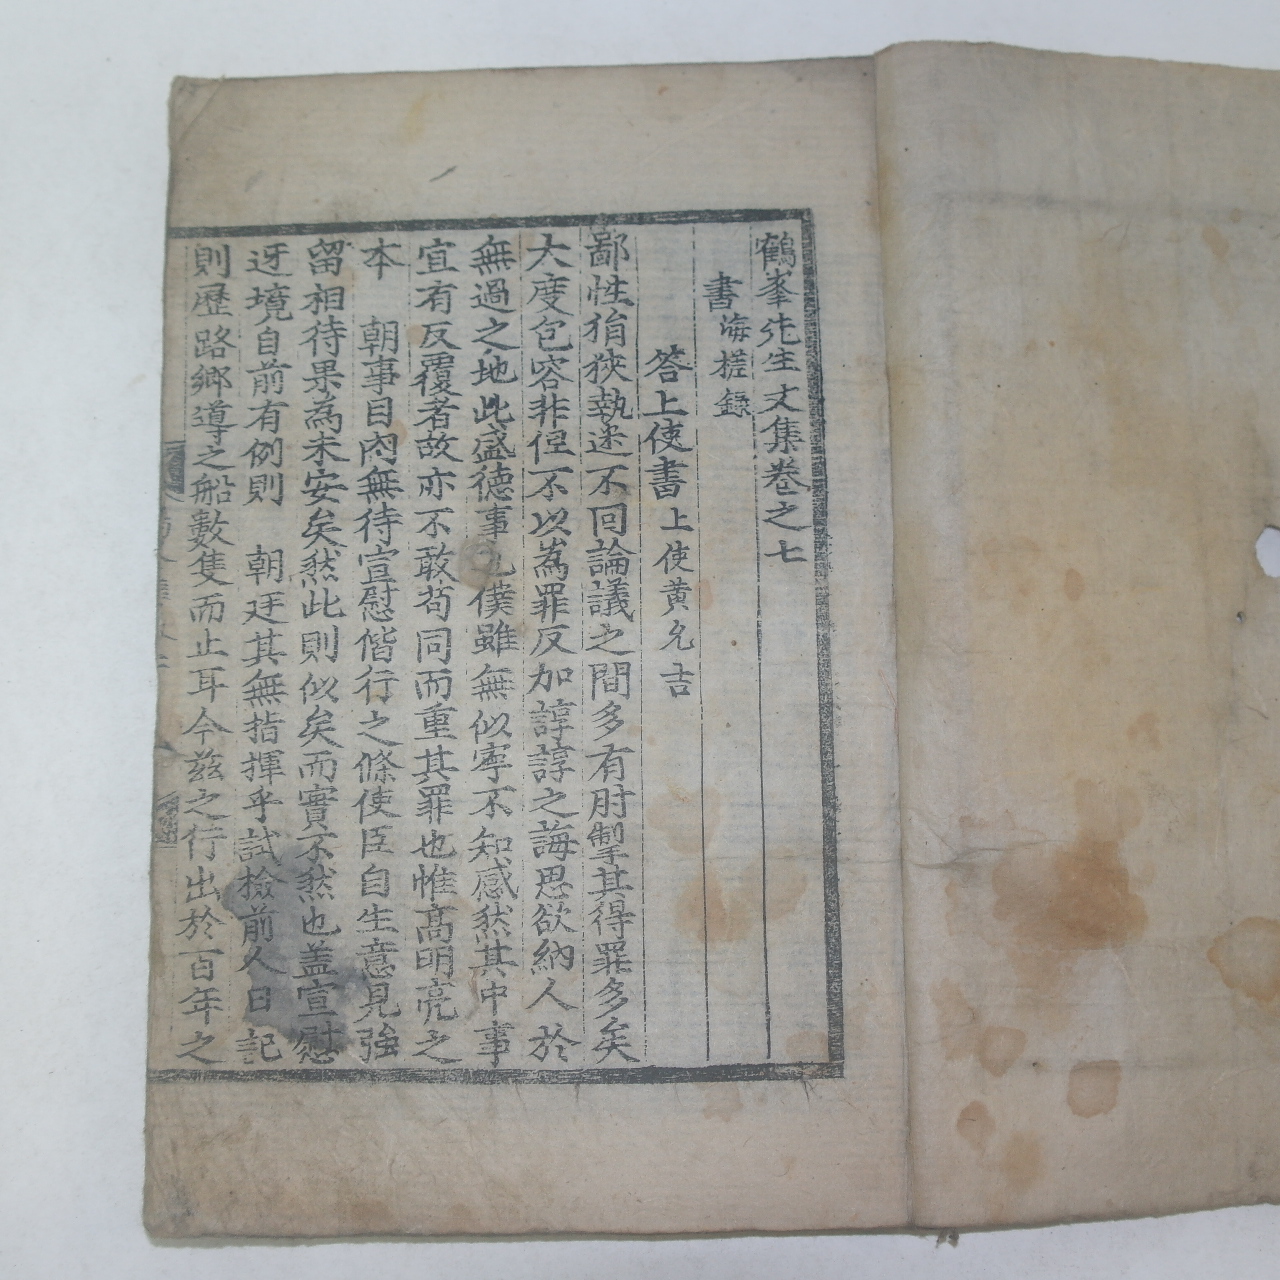 鶴峯先生文集卷之七
書海槎錄
答上使書上使黃允吉
鄙性狷狹執迷不回論議之間多有肘掣其得罪多矣
大度包容非但不以為罪反加諄諄之誨思欲納人於
無過之地此盛德事也僕雖無似寧不知感然其中事
宜有反覆者故亦不敢苟同而重其罪也惟高明亮之
本　朝事目內無待宣慰偕行之條使臣自生意見強
留相待果為未安矣然此則似矣而實不然也盖宣慰
迓境自前有例則　朝廷其無指揮乎試撿前人日記
則歷路鄉導之船數隻而止耳今玆之行出於百年之